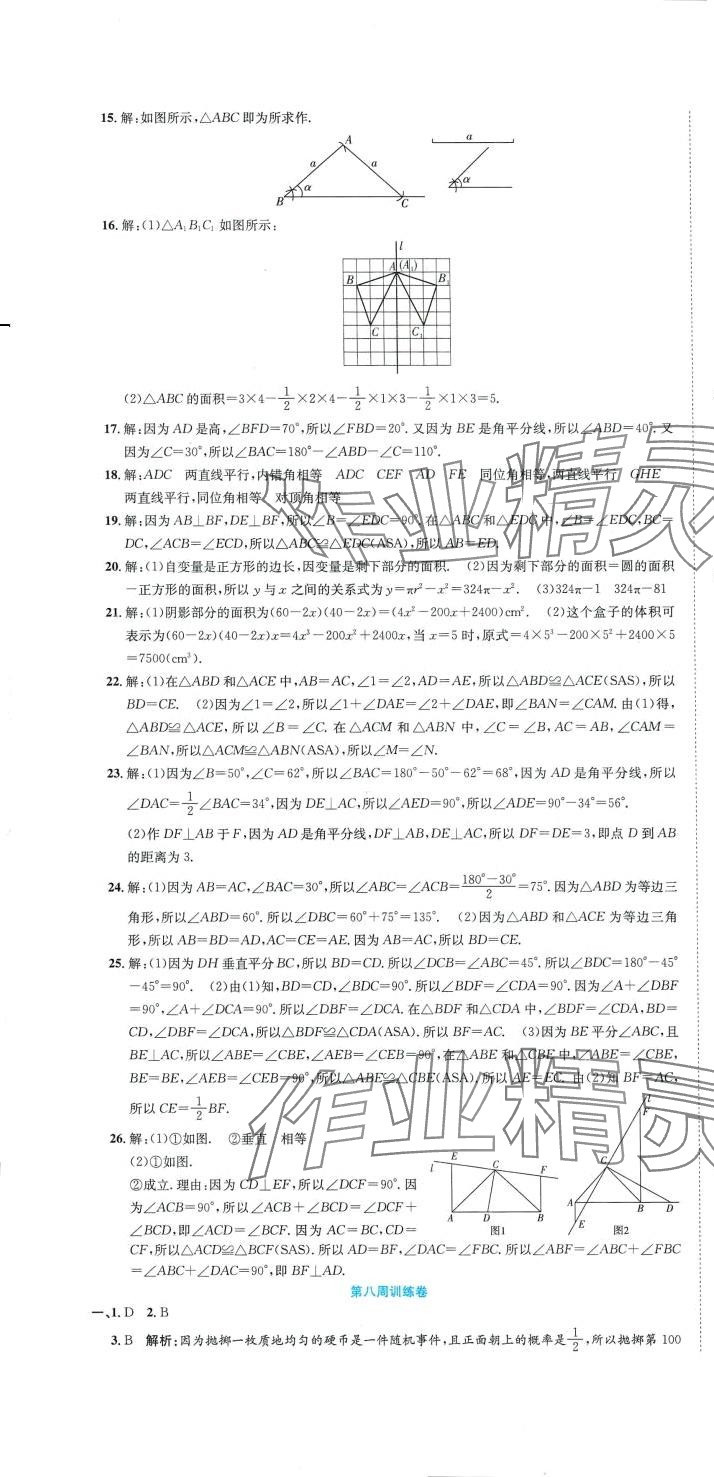 15. 解:如图所示,△ABC即为所求作.
A a a B α C
a α
16. 解:(1)△A₁B₁C₁ 如图所示:
l
A (A₁)
B B₁
C C₁
(2)△ABC的面积=3×4-1/2×2×4-1/2×1×3-1/2×1×3=5.
17. 解:因为AD是高,∠BFD=70°,所以∠FBD=20°. 又因为BE是角平分线,所以∠ABD=40°. 又
因为∠C=30°,所以∠BAC=180°-∠ABD-∠C=110°.
18. 解:ADC 两直线平行,内错角相等 ADC CEF AD FE 同位角相等,两直线平行 GHE
两直线平行,同位角相等 对顶角相等
19. 解:因为AB⊥BF,DE⊥BF,所以∠B=∠EDC=90°. 在△ABC和△EDC中,∠B=∠EDC,BC=
DC,∠ACB=∠ECD,所以△ABC≌△EDC(ASA),所以AB=ED.
20. 解:(1)自变量是正方形的边长,因变量是剩下部分的面积. (2)因为剩下部分的面积=圆的面积
-正方形的面积,所以y与x之间的关系式为y=πr²-x²=324π-x². (3)324π-1 324π-81
21. 解:(1)阴影部分的面积为(60-2x)(40-2x)=(4x²-200x+2400)cm². (2)这个盒子的体积可
表示为(60-2x)(40-2x)x=4x³-200x²+2400x,当x=5时,原式=4×5³-200×5²+2400×5
=7500(cm³).
22. 解:(1)在△ABD和△ACE中,AB=AC,∠1=∠2,AD=AE,所以△ABD≌△ACE(SAS),所以
BD=CE. (2)因为∠1=∠2,所以∠1+∠DAE=∠2+∠DAE,即∠BAN=∠CAM. 由(1)得,
△ABD≌△ACE,所以∠B=∠C. 在△ACM和△ABN中,∠C=∠B,AC=AB,∠CAM=
∠BAN,所以△ACM≌△ABN(ASA),所以∠M=∠N.
23. 解:(1)因为∠B=50°,∠C=62°,所以∠BAC=180°-50°-62°=68°,因为AD是角平分线,所以
∠DAC=1/2∠BAC=34°,因为DE⊥AC,所以∠AED=90°,所以∠ADE=90°-34°=56°.
(2)作DF⊥AB于F,因为AD是角平分线,DF⊥AB,DE⊥AC,所以DF=DE=3,即点D到AB
的距离为3.
24. 解:(1)因为AB=AC,∠BAC=30°,所以∠ABC=∠ACB=(180°-30°)/2=75°. 因为△ABD为等边三
角形,所以∠ABD=60°. 所以∠DBC=60°+75°=135°. (2)因为△ABD和△ACE为等边三角
形,所以AB=BD=AD,AC=CE=AE. 因为AB=AC,所以BD=CE.
25. 解:(1)因为DH垂直平分BC,所以BD=CD. 所以∠DCB=∠ABC=45°. 所以∠BDC=180°-45°
-45°=90°. (2)由(1)知,BD=CD,∠BDC=90°. 所以∠BDF=∠CDA=90°. 因为∠A+∠DBF
=90°,∠A+∠DCA=90°. 所以∠DBF=∠DCA. 在△BDF和△CDA中,∠BDF=∠CDA,BD=
CD,∠DBF=∠DCA,所以△BDF≌△CDA(ASA). 所以BF=AC. (3)因为BE平分∠ABC,且
BE⊥AC,所以∠ABE=∠CBE,∠AEB=∠CEB=90°,在△ABE和△CBE中,∠ABE=∠CBE,
BE=BE,∠AEB=∠CEB=90°,所以△ABE≌△CBE(ASA),所以AE=EC. 由(2)知BF=AC,
所以CE=1/2BF.
26. 解:(1)①如图. ②垂直 相等
(2)①如图.
②成立. 理由:因为CD⊥EF,所以∠DCF=90°. 因
为∠ACB=90°,所以∠ACB+∠BCD=∠DCF+
∠BCD,即∠ACD=∠BCF. 因为AC=BC,CD=
CF,所以△ACD≌△BCF(SAS). 所以AD=BF,∠DAC=∠FBC. 所以∠ABF=∠ABC+∠FBC
=∠ABC+∠DAC=90°,即BF⊥AD.
l E C F A D B 图1
l F C A B D E 图2
第八周训练卷
一、1. D 2. B
3. B 解析:因为抛掷一枚质地均匀的硬币是一件随机事件,且正面朝上的概率是1/2,所以抛掷第100
作业精灵
作业精灵